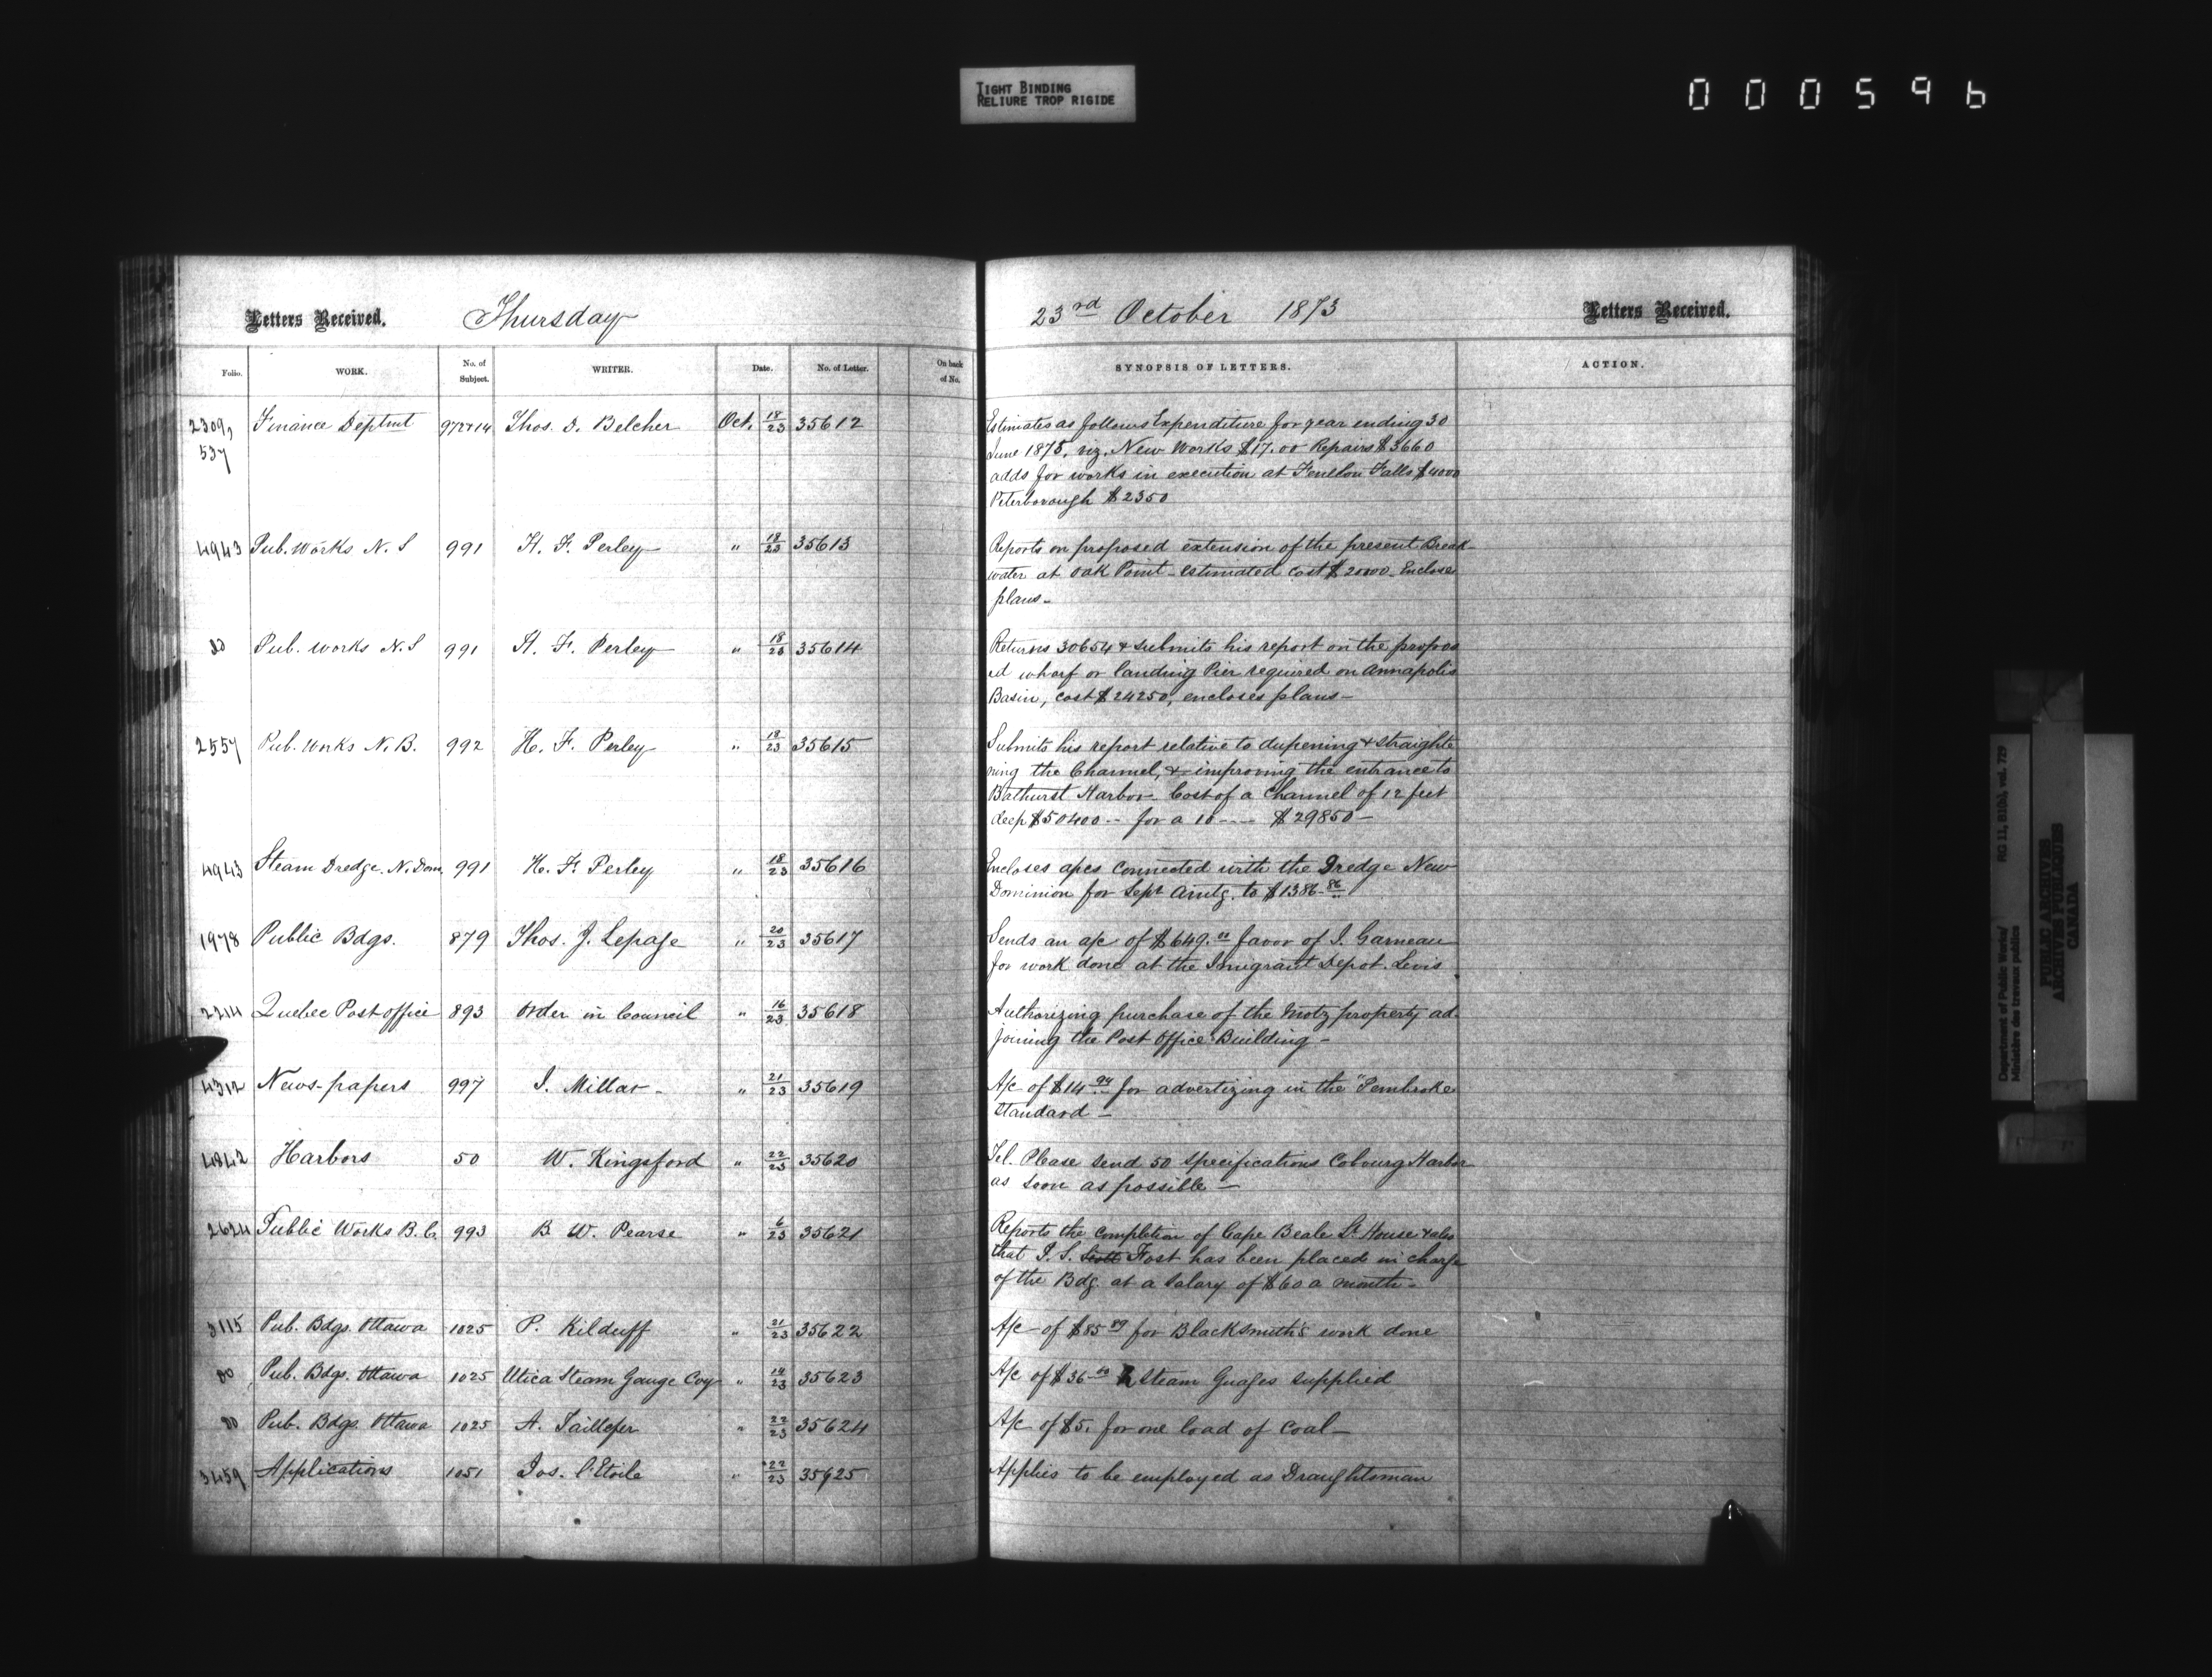 TIGHT BINDING
RELIURE TROP RIGIDE
000596
Letters Received. Thursday 23rd October 1873 Letters Received.
Folio. WORK. No. of Subject. WRITER. Date. No. of Letter. On back of No. SYNOPSIS OF LETTERS. ACTION.
2309, Finance Deptmt 972+14 Thos. D. Belcher Oct. 18/23 35612 Estimates as follows Expenditure for year ending 30
537 June 1875, viz. New Works $17.00 Repairs $3660
adds for works in execution at Fenelon Falls $4000
Peterborough $2350
4943 Pub. Works N. S 991 H. F. Perley " 18/23 35613 Reports on proposed extension of the present Break-
water at Oak Point - estimated cost $20000 - Enclose
plans -
Do Pub. Works N. S 991 H. F. Perley " 18/23 35614 Returns 30654 & submits his report on the propos
ed wharf or landing Pier required on Annapolis
Basin, cost $24250, encloses plans -
2557 Pub. Works N. B. 992 H. F. Perley " 18/23 35615 Submits his report relative to dupening & straighte
ning the Channel, & improving the entrance to
Bathurst Harbor - Cost of a Channel of 12 feet
deep $50400 -- for a 10 ---- $29850 -
4943 Steam Dredge. N. Dom. 991 H. F. Perley " 18/23 35616 Encloses apcs connected with the Dredge New
Dominion for Sept amtg. to $1386.86
1978 Public Bdgs. 879 Thos. J. Lepage " 20/23 35617 Sends an a/c of $649.00 favor of J. Garneau
for work done at the Imigrant Depot. Levis
2214 Quebec Post office 893 Order in Council " 16/23 35618 Authorizing purchase of the Motz property ad-
joining the Post Office Building -
4312 News-papers 997 J. Millar - " 21/23 35619 A/c of $14.94 for advertizing in the "Pembroke
Standard -
4842 Harbors 50 W. Kingsford " 22/23 35620 Tel. Please send 50 specifications Cobourg Harbor
as soon as possible -
2624 Public Works B. C. 993 B. W. Pearse " 6/23 35621 Reports the completion of Cape Beale Lt House & also
that J. S. Scott Fost has been placed in charge
of the Bdg. at a salary of $60 a month -
3115 Pub. Bdgs. Ottawa 1025 P. Kilduff " 21/23 35622 A/c of $85.89 for Blacksmith's work done
Do Pub. Bdgs. Ottawa 1025 Utica Steam Gauge Coy " 14/23 35623 A/c of $36.00 Steam Guages supplied
Do Pub. Bdgs. Ottawa 1025 A. Taillefer " 22/23 35624 A/c of $5. for one load of Coal -
3459 Applications 1051 Jos. l'Etoile " 22/23 35625 Applies to be employed as Draughtsman
Department of Public Works/ RG 11, B1(b), vol. 729
Ministère des travaux publics
PUBLIC ARCHIVES
ARCHIVES PUBLIQUES
CANADA